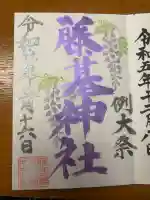 例大祭
藤基神社
令和五年
十六日
令和五年十一月八日